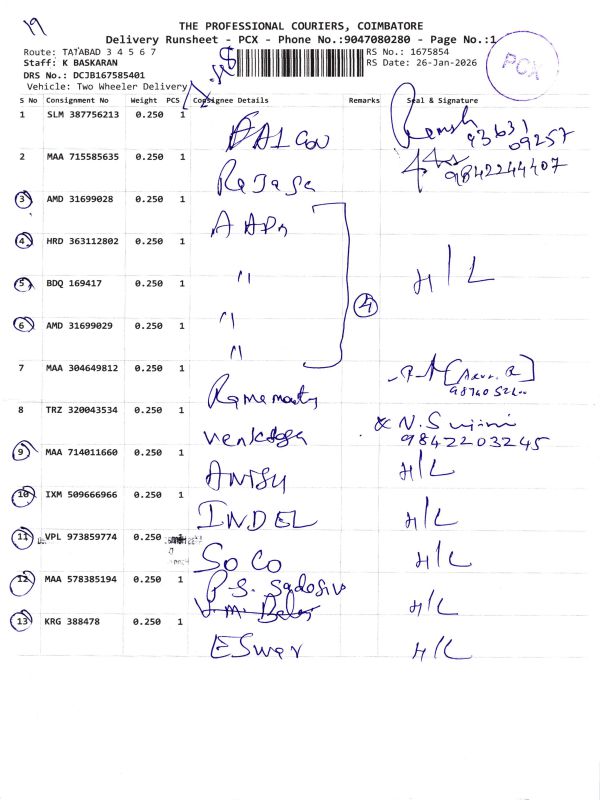 19
THE PROFESSIONAL COURIERS, COIMBATORE
Delivery Runsheet - PCX - Phone No.:9047080280 - Page No.:1
Route: TATABAD 3 4 5 6 7
RS No.: 1675854
Staff: K BASKARAN
RS Date: 26-Jan-2026
DRS No.: DCJB167585401
PCX
Vehicle: Two Wheeler Delivery
S No Consignment No Weight PCS Consignee Details Remarks Seal & Signature
1 SLM 387756213 0.250 1 FALCON 93631 09257
2 MAA 715585635 0.250 1 Rajasa 9842244407
3 AMD 31699028 0.250 1
4 HRD 363112802 0.250 1 " H/L
5 BDQ 169417 0.250 1 "
4
6 AMD 31699029 0.250 1 "
7 MAA 304649812 0.250 1
8 TRZ 320043534 0.250 1 N. Sujini 9842203245
9 MAA 714011660 0.250 1 H/L
10 IXM 509666966 0.250 1 INDEL H/L
11 VPL 973859774 0.250 SOCO H/L
12 MAA 578385194 0.250 1 P.S. Sadasiv H/L
13 KRG 388478 0.250 1 ESwar H/L